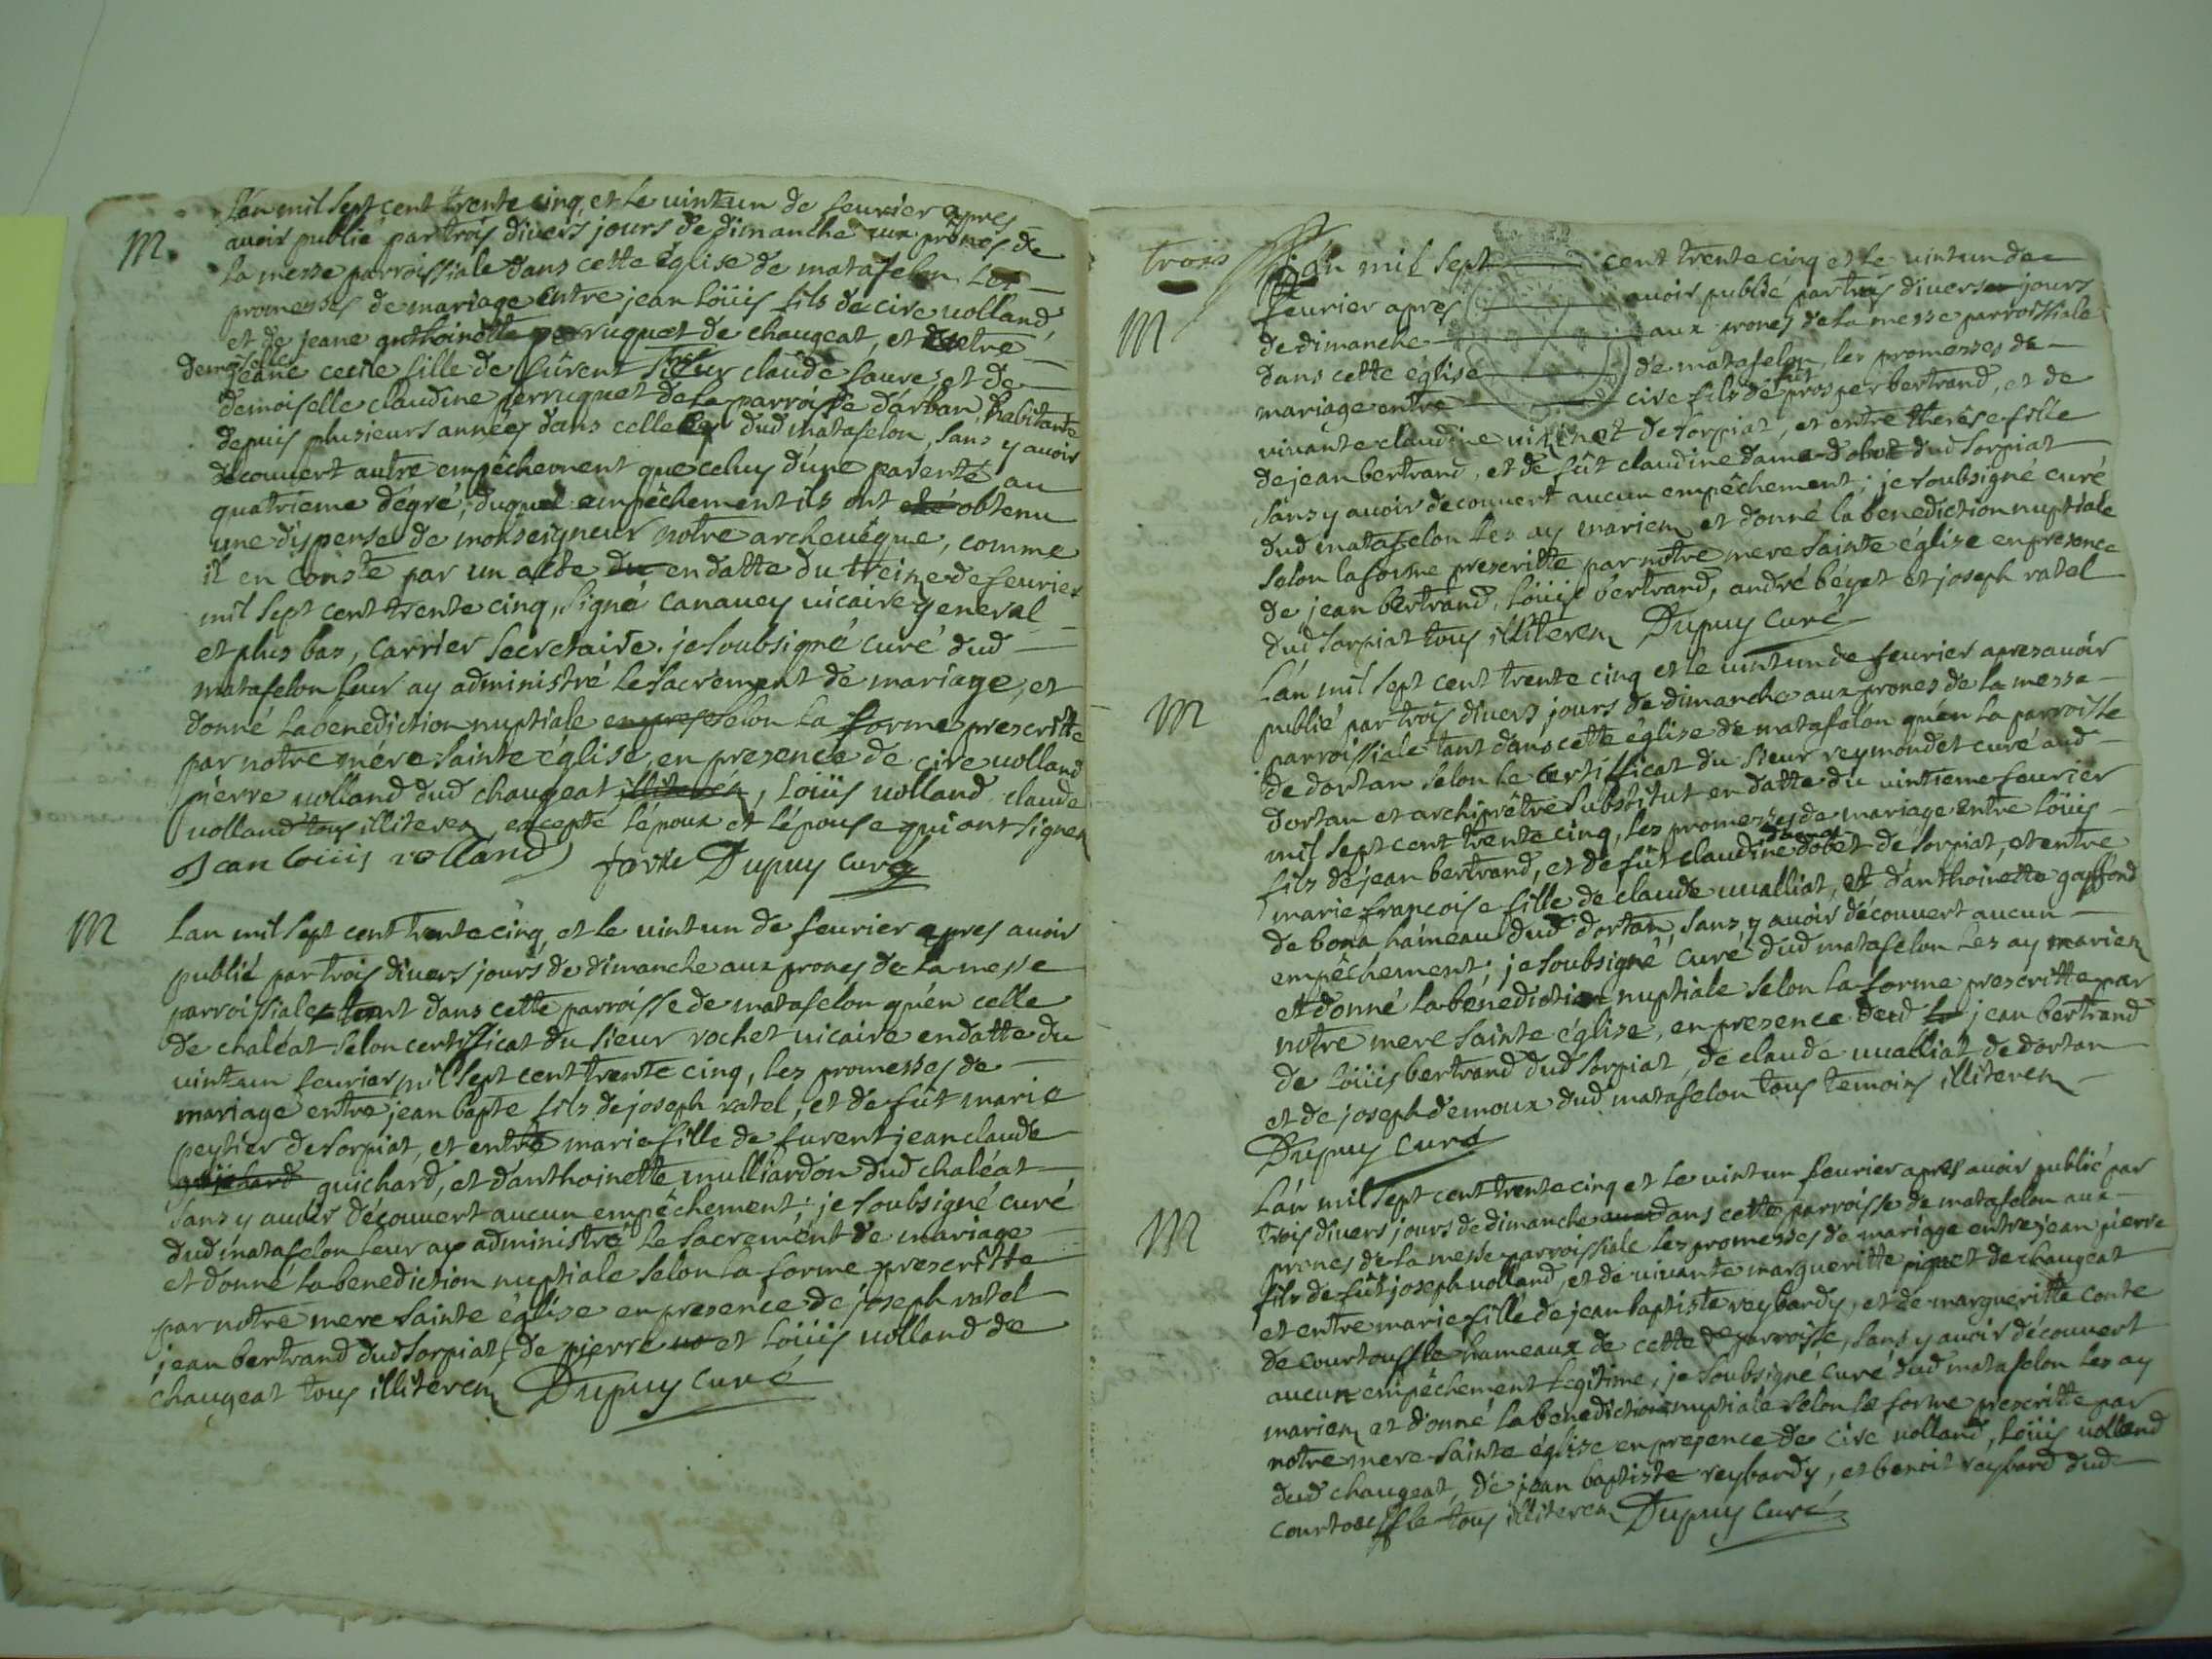 M.
Lan mil sept cent trente cinq, et le vintun de feurier apres
auoir publié par trois divers jours de dimanche aux prônes de
la messe parroissiale dans cette église de matafelon Les
promesses de mariage entre jean loüis fils de cire uolland,
et de jeane anthoinette perruquet de chaugeat, et entre
demoiselle
jeane cecile fille de fûrent sieur claude faure, et de
demoiselle claudine perruquet de la parroisse d'arban, habitante
depuis plusieurs années dans celle cy dud matafelon, sans y auoir
découuert autre empêchement que celuy d'une parenté au
quatrieme dégré, duquel empêchement ils ont eté obtenu
une dispense de monseigneur notre archeuêque, comme
il en conste par un acte du en datte du treize de feurier
mil sept cent trente cinq, signé canauey uicaire general
et plus bas, carrier secretaire. je soubsigné curé dud
matafelon leur ay administré le sacrement de mariage, et
donné la benédiction nuptiale en pres selon la forme prescritte
par notre mére sainte église, en presence de cire uolland
pierre uolland dud chaugeat illiteréz, loüis uolland claude
uolland tous illiterez, excepté lépoux et lépouse qui ont signez
Jean loüis volland faure Dupuy curé
M
Lan mil sept cent trente cinq, et le vintun de feurier apres auoir
publié par trois divers jours de dimanche aux prones de la messe
parroissiale tant dans cette parroisse de matafelon qu'en celle
de chaléat selon certifficat du sieur rochet uicaire en datte du
vintun feurier mil sept cent trente cinq, les promesses de
mariage entre jean bapte fils de joseph ratel, et de fût marie
peytier de sorpiat, et entre marie fille de furent jean claude
guichard guichard, et d'anthoinette mulliardon dud chaléat
sans y auoir découuert aucun empêchement; je soubsigné curé
dud matafelon leur ay administré le sacrement de mariage
et donné la benediction nuptiale selon la forme prescritte
par notre mere sainte église en presence de joseph ratel
jean bertrand dud sorpiat, de pierre uo et loüis uolland de
chaugeat tous illiterez Dupuy curé
trois
M
L'an mil sept cent trente cinq et le vintun de
feurier apres auoir publié par trois divers jours
de dimanche aux prones de la messe parroissiale
dans cette église de matafelon, les promesses de
mariage entre cire fils de fût prosper bertrand, et de
vivante claudine de sorpiat, et entre therese fille
de jean bertrand, et de fût claudine dame dobet dud sorpiat
sans y auoir decouuert aucun empêchement; je soubsigné curé
dud matafelon les ay mariez et donné la benediction nuptiale
selon la forme prescritte par notre mere sainte église en presence
de jean bertrand, loüis bertrand, andré béget et joseph ratel
dud sorpiat tous illiterez Dupuy curé
M
L'an mil sept cent trente cinq et le vintun de feurier apres auoir
publié par trois divers jours de dimanche aux prones de la messe
parroissiale tant dans cette église de matafelon qu'en la parroisse
de dortan selon le certifficat du sieur reymondet curé aud
dortan et archiprêtre substitut en datte du vintieme feurier
mil sept cent trente cinq, les promesses de mariage entre loüis
fils de jean bertrand, et de fût claudine dame dobet de sorpiat, et entre
marie françoise fille de claude uualliat, et d'anthoinette gaffond
de bona hameau dud dortan, sans y auoir découuert aucun
empêchement; je soubsigné curé dud matafelon les ay mariez
et donné la bénediction nuptiale selon la forme prescritte par
notre mere sainte église, en presence dud jean bertrand
de loüis bertrand dud sorpiat, de claude uualliat de dortan
et de joseph demoux dud matafelon tous temoins illiterez
Dupuy curé
M
L'an mil sept cent trente cinq et le vintun feurier apres auoir publié par
trois divers jours de dimanche dans cette parroisse de matafelon aux
prones de la messe parroissiale les promesses de mariage entre jean pierre
fils de fût joseph uolland, et de vivante margueritte piquet de chaugeat
et entre marie fille de jean baptiste reybardy, et de margueritte conte
de courtouffle hameaux de cette de parroisse, sans y auoir découuert
aucun empêchement legitime, je soubsigné curé dud matafelon les ay
mariez et donné la bénediction nuptiale selon la forme prescritte par
notre mere sainte église en presence de cire uolland, loüis uolland
dud chaugeat, de jean baptiste reybardy, et benoit reybard dud
courtouffle tous illiterez Dupuy curé